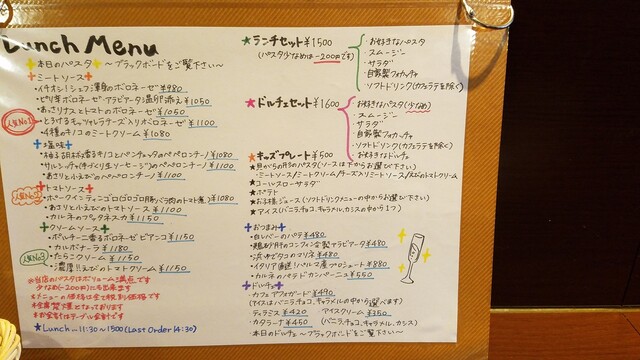 Lunch Menu
+本日のパスタ+ ～ブラックボードをご覧下さい～
+ミートソース+
・イチオシ!シェフ渾身のボロネーゼ ¥980
・ピリ辛ボロネーゼ・アラビアータ温卵添え ¥1050
・あっさりナスとトマトのボロネーゼ ¥1050
人気No.1
・とろけるモッツァレラチーズ入りボロネーゼ ¥1100
・4種のキノコのミートクリーム ¥1080
+塩味+
香るキノコとパンチェッタのペペロンチーノ ¥1080
・サルシッチャ(手づくり生ソーセージ)のペペロンチーノ ¥1100
・あさりと小えびのペペロンチーノ ¥1100
+トマトソース+
人気No.2
・ポークインティーニョゴロゴロ(豚バラ肉のトマト煮) ¥1080
・あさりと小えびのトマトソース ¥1100
・カルネのプッタネスカ ¥1150
+クリームソース+
・ポルチーニ香るボロネーゼビアンコ ¥1150
・カルボナーラ ¥1180
人気No.3
・たらこクリーム ¥1150
・濃厚!!えびのトマトクリーム ¥1150
※当店のパスタはボリューム満点です
少なめ(-200円)にも出来ます
※メニューの価格は全て税別価格です
※全席禁煙となっております
※お会計はテーブル会計です
★Lunch… 11:30~1500 (Last Order 14:30)
★ランチセット ¥1500
(パスタ少なめは-200円です)
・お好きなパスタ
・スムージー
・サラダ
・自家製フォカッチャ
・ソフトドリンク(カフェラテを除く)
★ドルチェセット ¥1600
・お好きなパスタ(少なめ)
・スムージー
・サラダ
・自家製フォカッチャ
・ソフトドリンク(カフェラテを除く)
・お好きなドルチェ
★キッズプレート ¥500
★貝がらの形のパスタ(ソースは下からお選び下さい)
・ミートソース/ミートクリーム/チーズ入りミートソース/えびのトマトクリーム
★コールスローサラダ
★ポテト
★お子様ジュース(ソフトドリンクメニューの中からお選び下さい)
★アイス(バニラ,チョコ,キャラメル,カシスの中から1つ)
+おつまみ+
・白レバーのパテ ¥480
・鶏砂肝のコンフィ 全製でアラビアータ ¥480
・浜ゆでタコのマリネ ¥480
・イタリア直送!パルマ産プロシュート ¥880
・カルネのパテドカンパーニュ ¥550
+ドルチェ+
・カフェアフォガード ¥490
(アイスはバニラ,チョコ,キャラメルの中から選べます)
・ティラミス ¥420
・アイスクリーム ¥350
・カタラーナ ¥450
(バニラ,チョコ,キャラメル,カシス)
・本日のドルチェ ～ブラックボードをご覧下さい～